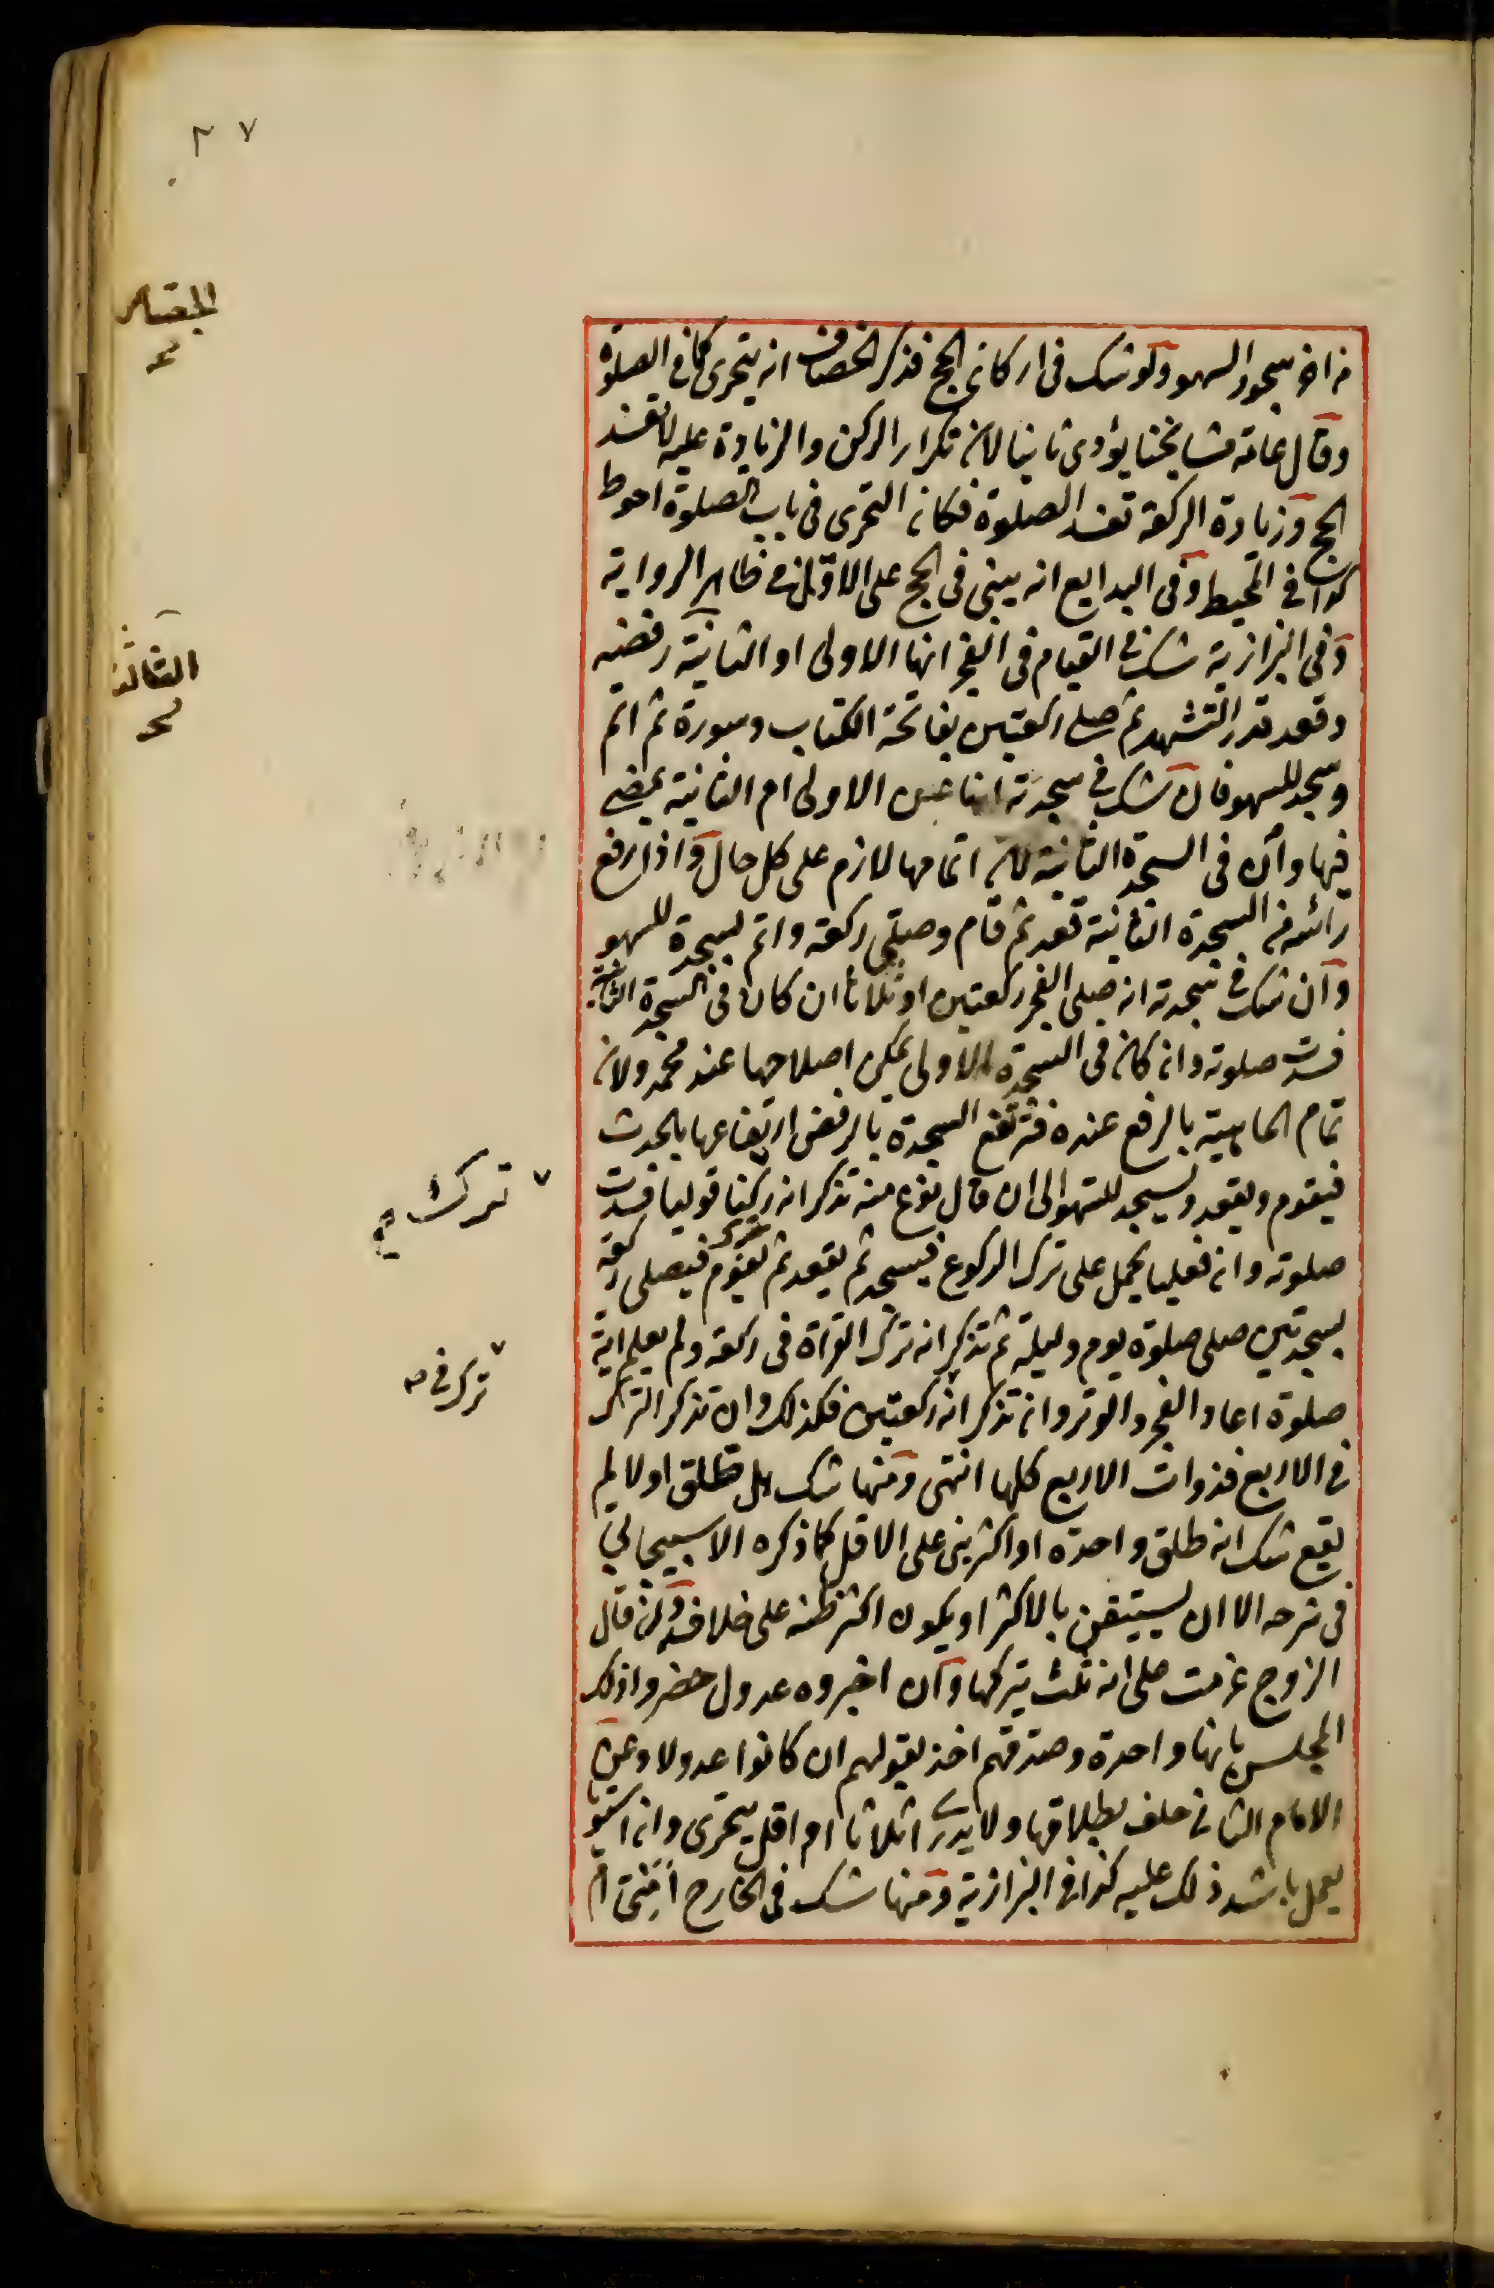 ٣٧
الجصاص
نخـ
من اخر سجود السهو ولو شك فى اركان الحج فذكر الخصاف انه يتحرى كما فى الصلوة
وقال عامة مشايخنا يؤدى ثانيا لان تكرار الركن والزيادة عليه لا تفسد
الحج وزيادة الركعة تفسد الصلوة فكان التحرى فى باب الصلوة احوط
كذا فى المحيط وفى البدايع انه يبنى فى الحج على الاقل فى ظاهر الرواية
وفى البزازية شك فى القيام فى الفجر انها الاولى او الثانية رفضه
وقعد قدر التشهد ثم صلى ركعتين بفاتحة الكتاب وسورة ثم اتم
وسجد للسهو فان شك فى سجدته انها عن الاولى ام الثانية يمضى
فيها وان فى السجدة الثانية لان اتمامها لازم على كل حال واذا رفع
رأسه من السجدة الثانية قعد ثم قام وصلى ركعة واتم بسجدة للسهو
وان شك فى سجدته انه صلى الفجر ركعتين او ثلاثا ان كان فى السجدة الثانية
فسدت صلوته وان كان فى السجدة الاولى يمكن اصلاحها عند محمد ولان
تمام الماهية بالرفع عنده فترتفع السجدة بالرفض ارتفاعها بالحدث
فيقوم ويقعد ويسجد للسهو الى ان قال نوع منه تذكر انه ركنا قوليا فسدت
صلوته وان فعليا يحمل على ترك الركوع فيسجد ثم يقعد ثم يقوم فيصلى ركعة
بسجدتين صلى صلوة يوم وليلة ثم تذكر انه ترك القرأة فى ركعة ولم يعلم اية
صلوة اعاد الفجر والوتر وان تذكر انه ركعتين فكذلك وان تذكر الترك
فى الاربع فذوات الاربع كلها انتهى ومنها شك هل طلق او لا لم
يقع شك انه طلق واحدة او اكثر بنى على الاقل كما ذكره الاسبيجابى
فى شرحه الا ان يستيقن بالاكثر او يكون اكثر ظنه على خلافه وان قال
الزوج عزمت على انه ثلث يتركها وان اخبروه عدول حضروا ذلك
المجلس بانها واحدة وصدقهم اخذ بقولهم ان كانوا عدولا وعن
الامام الثانى حلف بطلاقها ولا يدرى اثلاثا ام اقل يتحرى وان استو
يعمل باشد ذلك عليه كذا فى البزازية ومنها شك فى الخارج أمنى ام
ترك
ترك فى